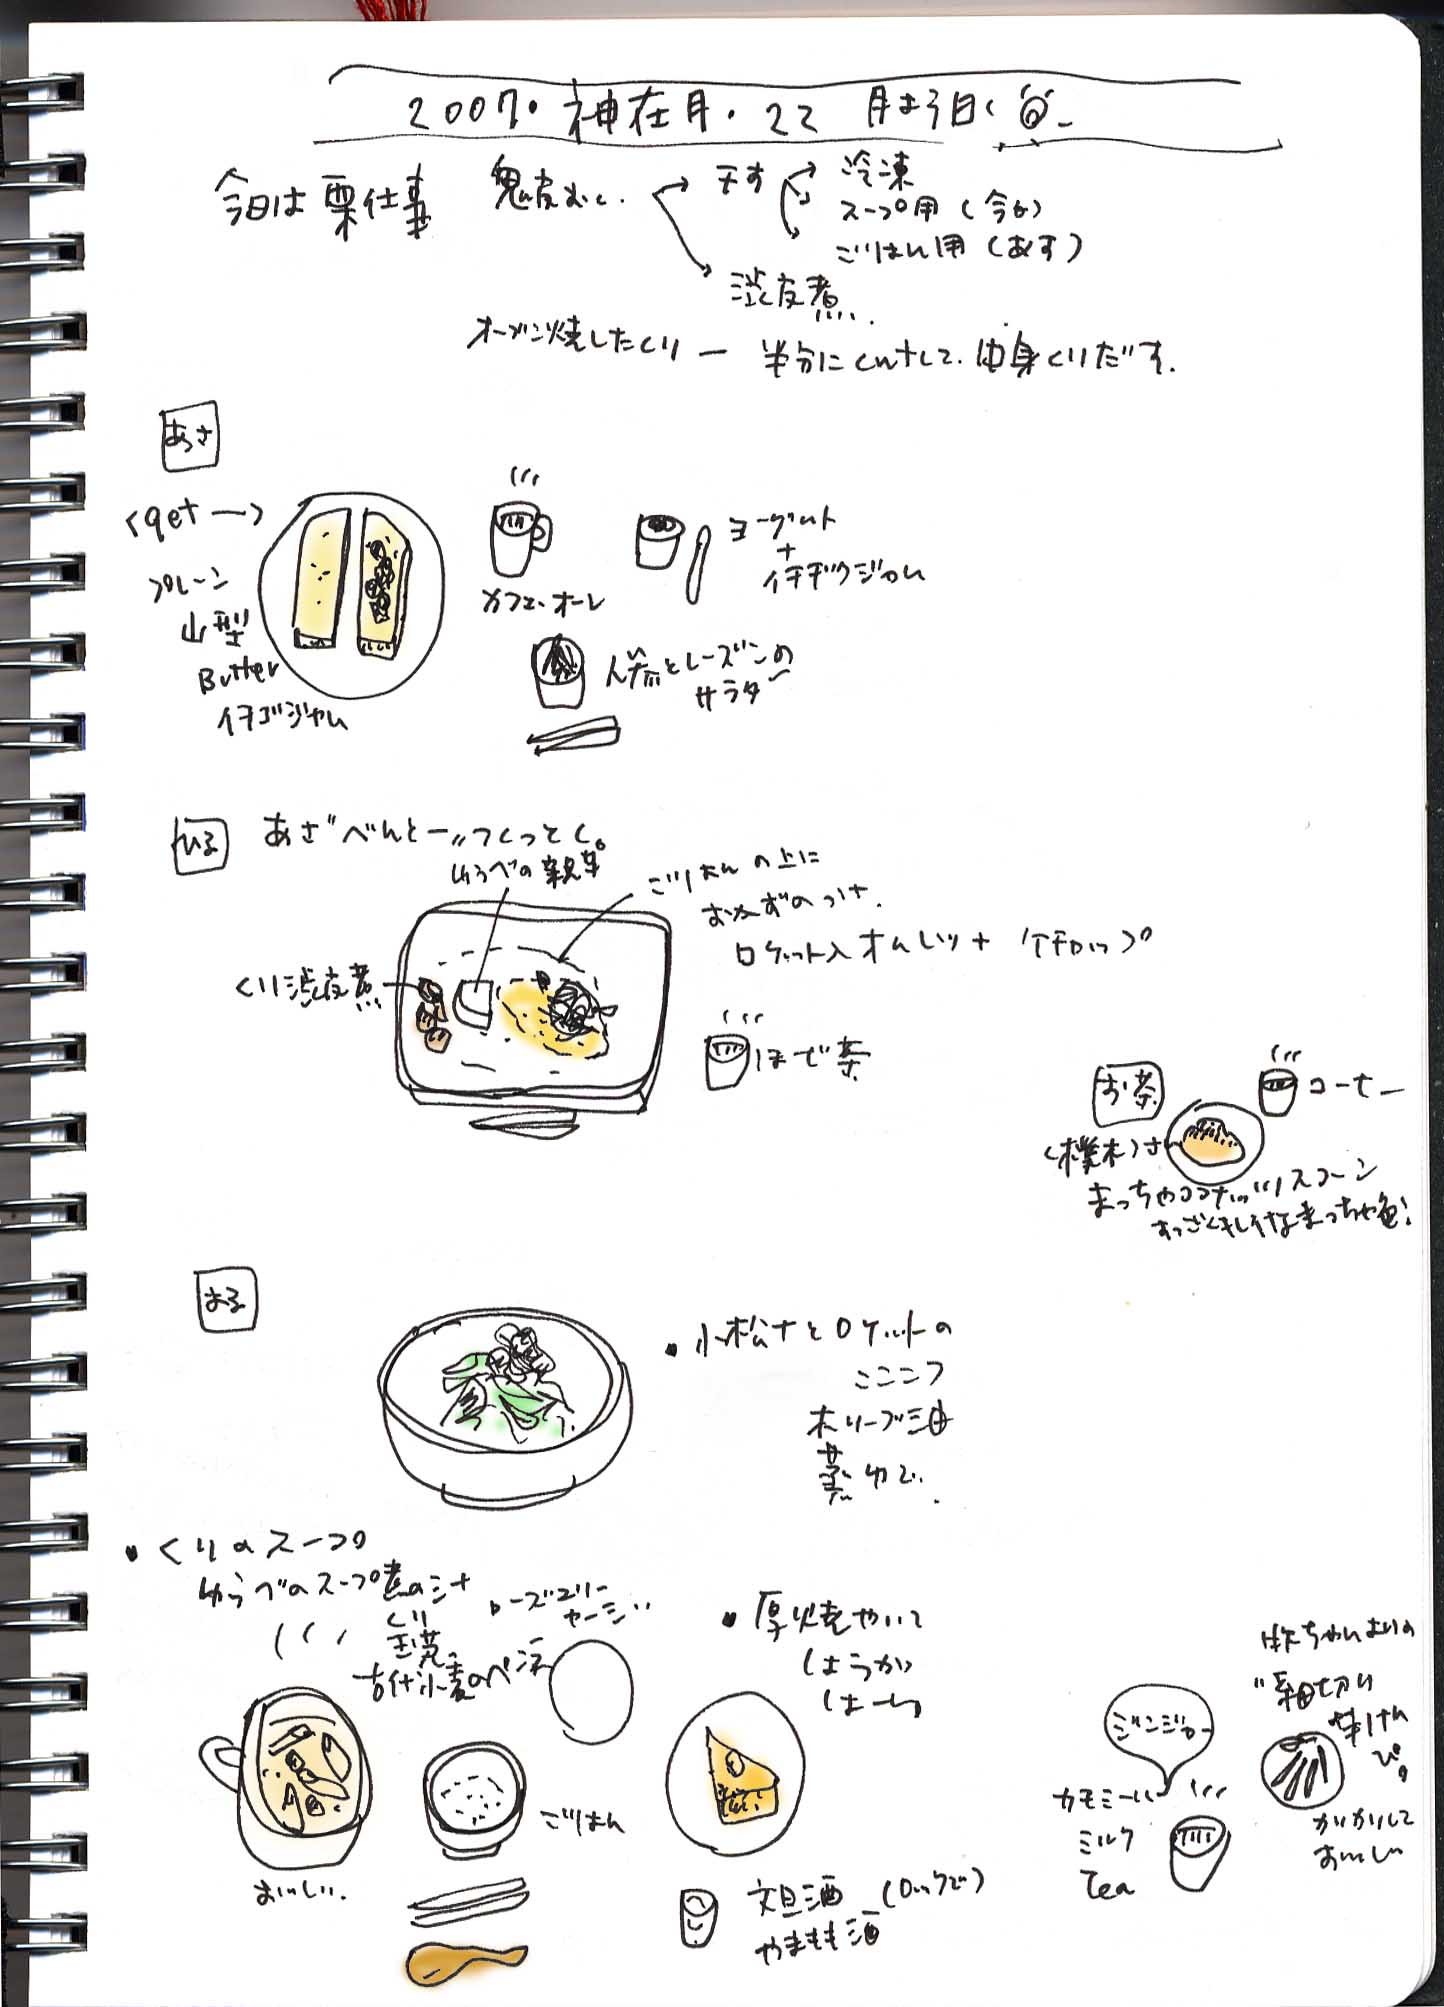 2007・神在月・22 月よう日
今日は栗仕事 鬼皮むく. 干す 冷凍
スープ用(今夕)
ごはん用(あす)
渋皮煮.
オーブン焼したくり ー 半分にcutして. 中身くりだす.
あさ
プレーン
山型
Butter
イチゴジャム
カフェ・オーレ
ヨーグルト
+
イチヂクジャム
人参とレーズンの
サラダ
ひる
あさ"べんとー"つくっとく。
ゆうべの
ごはんの上に
おかずのっけ.
ロケット入オムレツ + ケチャップ
くり渋皮煮
ほうじ茶
お茶
コーヒー
まっちゃココナッツスコーン
よる
・小松ナとロケットの
オリーブ油
蒸ゆで.
・くりのスープ
ゆうべのスープ煮の汁
くり
古代小麦のペンネ
ローズマリー
おいしい.
ごはん
・厚焼やいて
しょうが
しょーゆ
文旦酒 (ロックで)
やまもも酒
ジンジャー
カモミール
ミルク
Tea
"細切り
かりかりして
おいしい